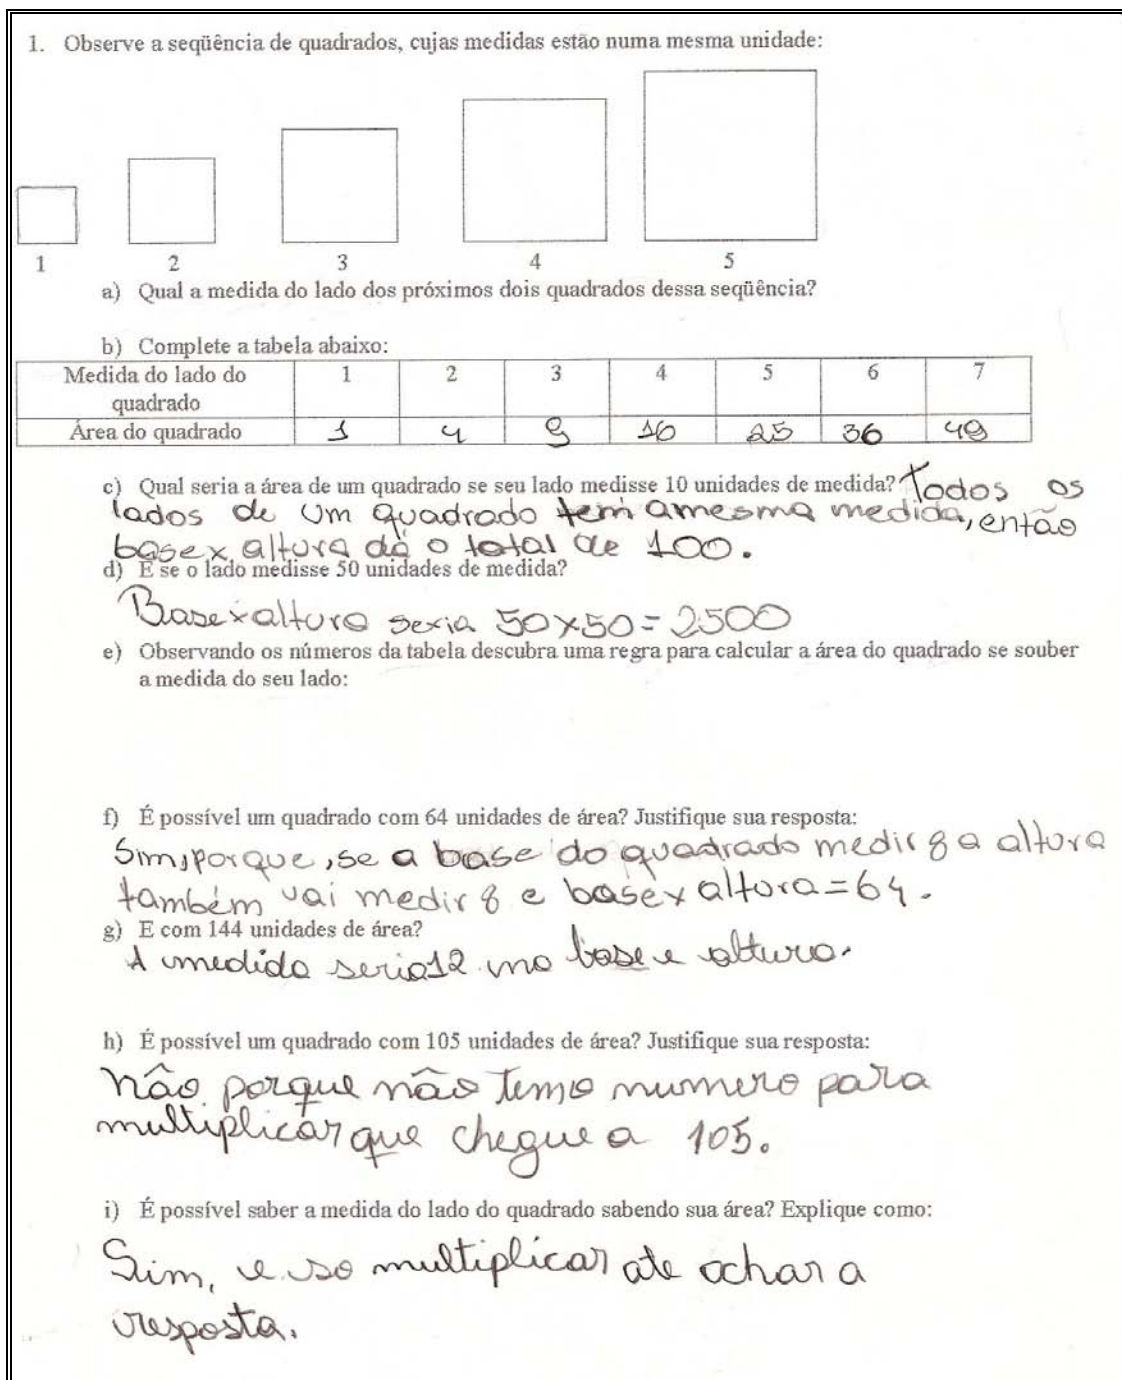 1. Observe a seqüência de quadrados, cujas medidas estão numa mesma unidade:
1 2 3 4 5
a) Qual a medida do lado dos próximos dois quadrados dessa seqüência?
b) Complete a tabela abaixo:
Medida do lado do quadrado 1 2 3 4 5 6 7
Área do quadrado 1 4 9 16 25 36 49
c) Qual seria a área de um quadrado se seu lado medisse 10 unidades de medida? Todos os
lados de um quadrado tem a mesma medida, então
base x altura dá o total de 100.
d) E se o lado medisse 50 unidades de medida?
Base x altura seria 50x50=2500
e) Observando os números da tabela descubra uma regra para calcular a área do quadrado se souber
a medida do seu lado:
f) É possível um quadrado com 64 unidades de área? Justifique sua resposta:
Sim, porque, se a base do quadrado medir 8 a altura
também vai medir 8 e base x altura = 64.
g) E com 144 unidades de área?
A medida seria 12 na base e altura.
h) É possível um quadrado com 105 unidades de área? Justifique sua resposta:
não porque não temo numero para
multiplicar que chegue a 105.
i) É possível saber a medida do lado do quadrado sabendo sua área? Explique como:
Sim, e so multiplicar ate achar a
resposta.